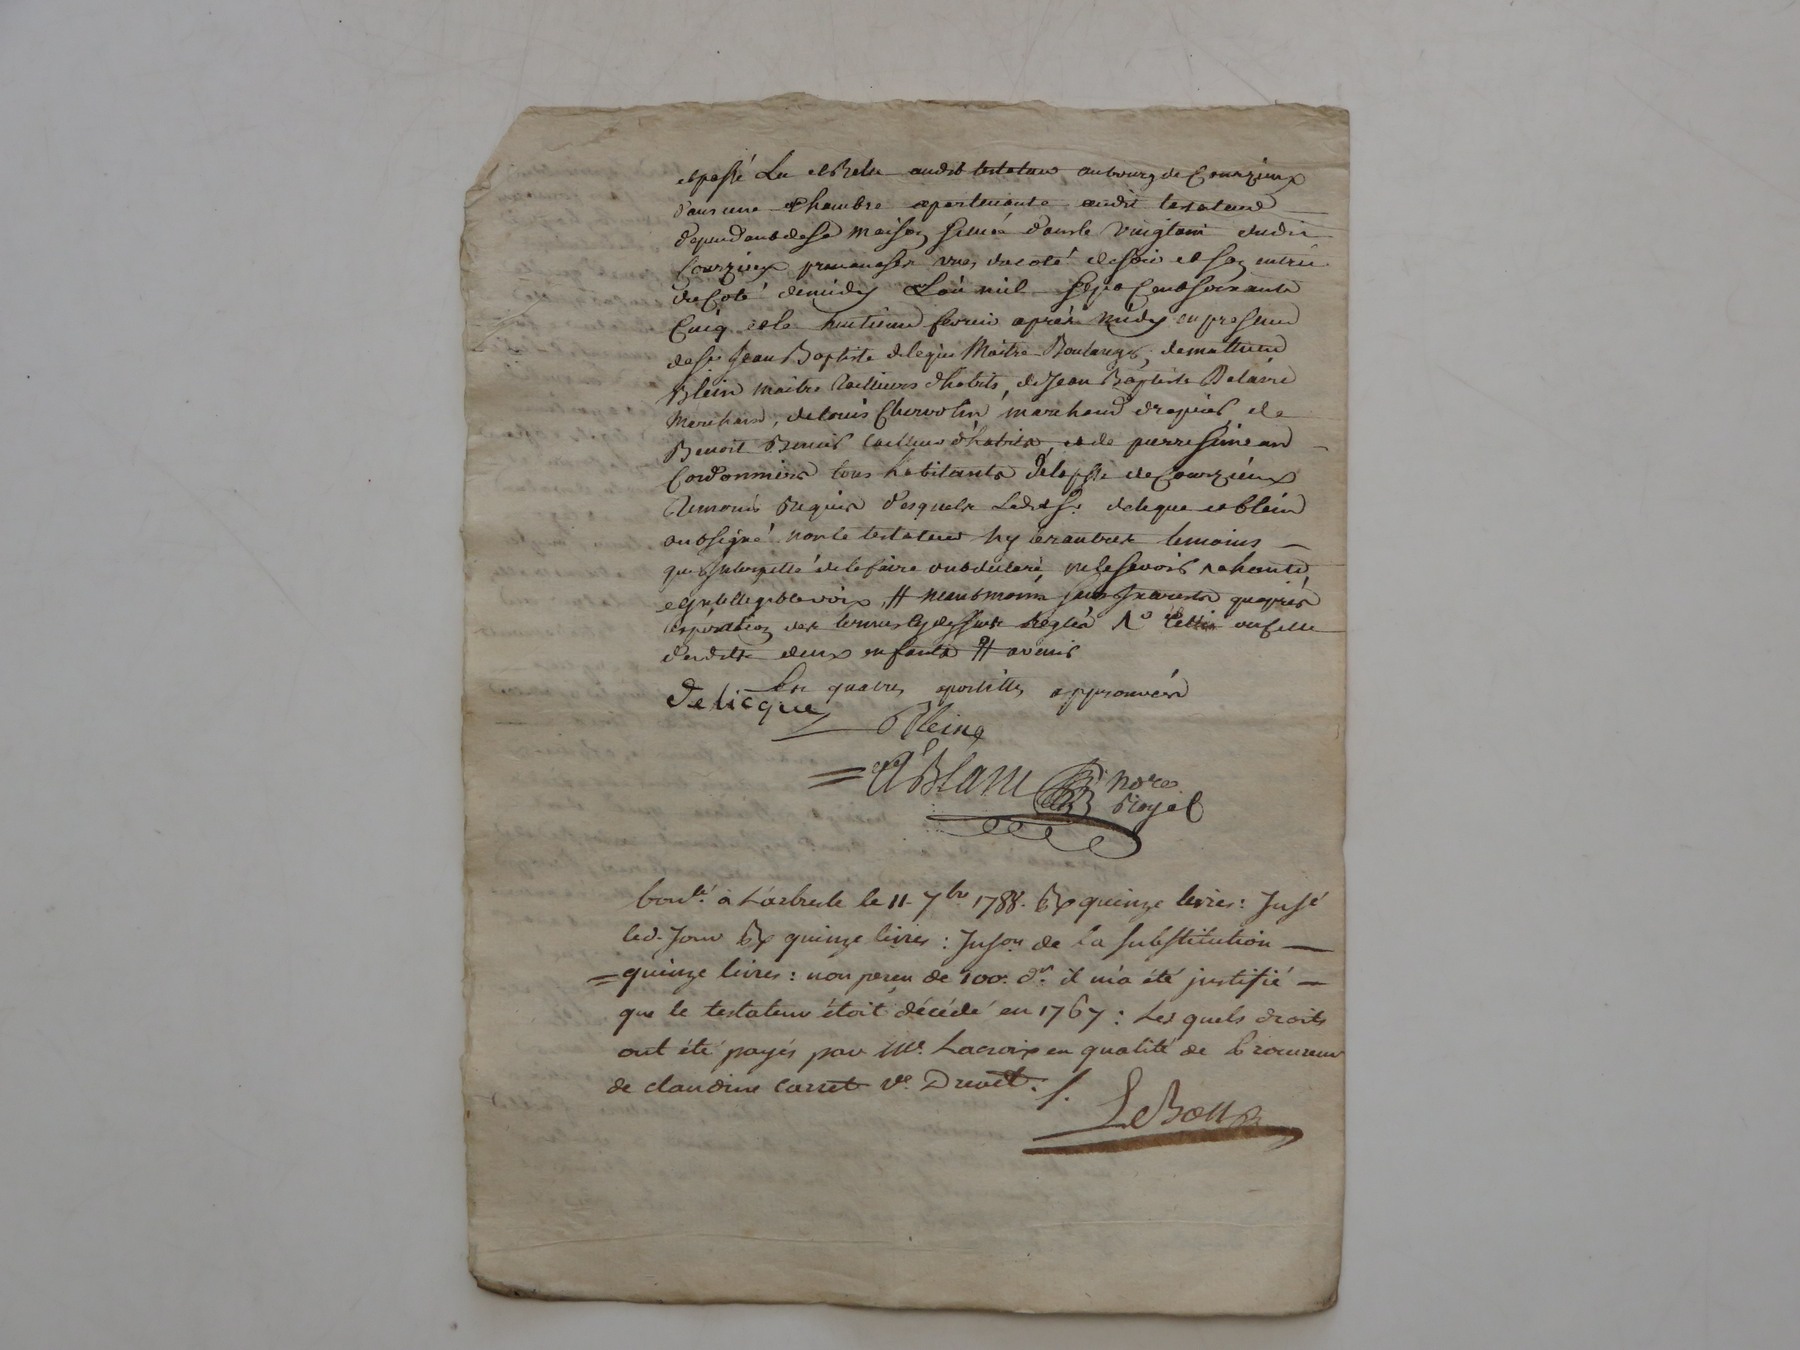 et passé Lu et Relu audit testateur au bourg de Courzieux
dans une Chambre apartenante audit testateur
dependant de sa Maison située dans le Vingtain dudit
Courzieux prenant ses vues du coté de soir et son entrée
du Coté de midy L'an mil Sept Cent Soixante
Cinq et le huitieme fevrier après midy en presence
de Sr. Jean Baptiste delique Maitre Boulanger, de mathieu
Blein maitre tailleurs d'habits, de Jean Baptiste
Marchand, de Louis marchand drapier de
Benoit tailleur d'habits et de pierre
Cordonnier tous habitants de la psse de Courzieux
temoins Requis desquels Ledt Sr. delique et blein
ont signé non le testateur ny les autres temoins
qui Interpellé de le faire ont declaré ne le savoir a haute
et Intelligible voix, # neantmoins sans qu'après
l'expiration des termes cy dessus reglés No celle
desdits deux enfants # avenir
Les quatres apostilles approuvées
Delicque
Bleing
Blanc Nore
Royal
Conlé. à L'arbresle le 11 7bre 1788. Rx quinze livres: Insé
led. Jour Rx quinze livres: Inson de la substitution
quinze livres: non perçu de 100e. dr. il m'a été justifié
que le testateur étoit décédé en 1767: Les quels droits
ont été payés par Me. Lacroix en qualité de Procureur
de claudine Carret ve.